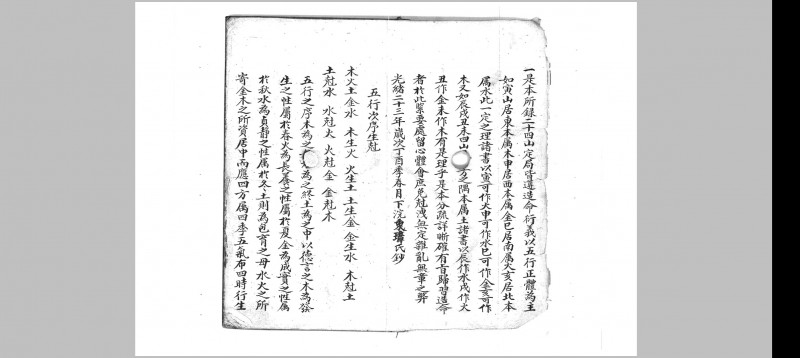 一是本所錄二十四山定局皆遵造命衍義以五行正體為主
如寅山居東本屬木申居西本屬金巳居南屬火亥居北本
屬水此一定之理諸書以寅可作火申可作水巳可作金亥可作
木又如辰戌丑未四山方之隅本屬土諸書以辰作水戌作火
丑作金未作木有是理乎是本分疏詳晰確有旨歸習造命
者於此緊要處留心體會庶免尅洩無定雜亂無章之弊
光緒二十三年歲次丁酉季春月下浣東璹氏鈔
五行次序生尅
木火土金水 木生火 火生土 土生金 金生水 木尅土
土尅水 水尅火 火尅金 金尅木
五行之序木為之為之終土為之中以德言之木為發
生之性屬於春火為長養之性屬於夏金為成實之性屬
於秋水為貞靜之性屬於冬土則為包育之母水火之所
寄金木之所資居中而應四方屬四季五氣布四時行生